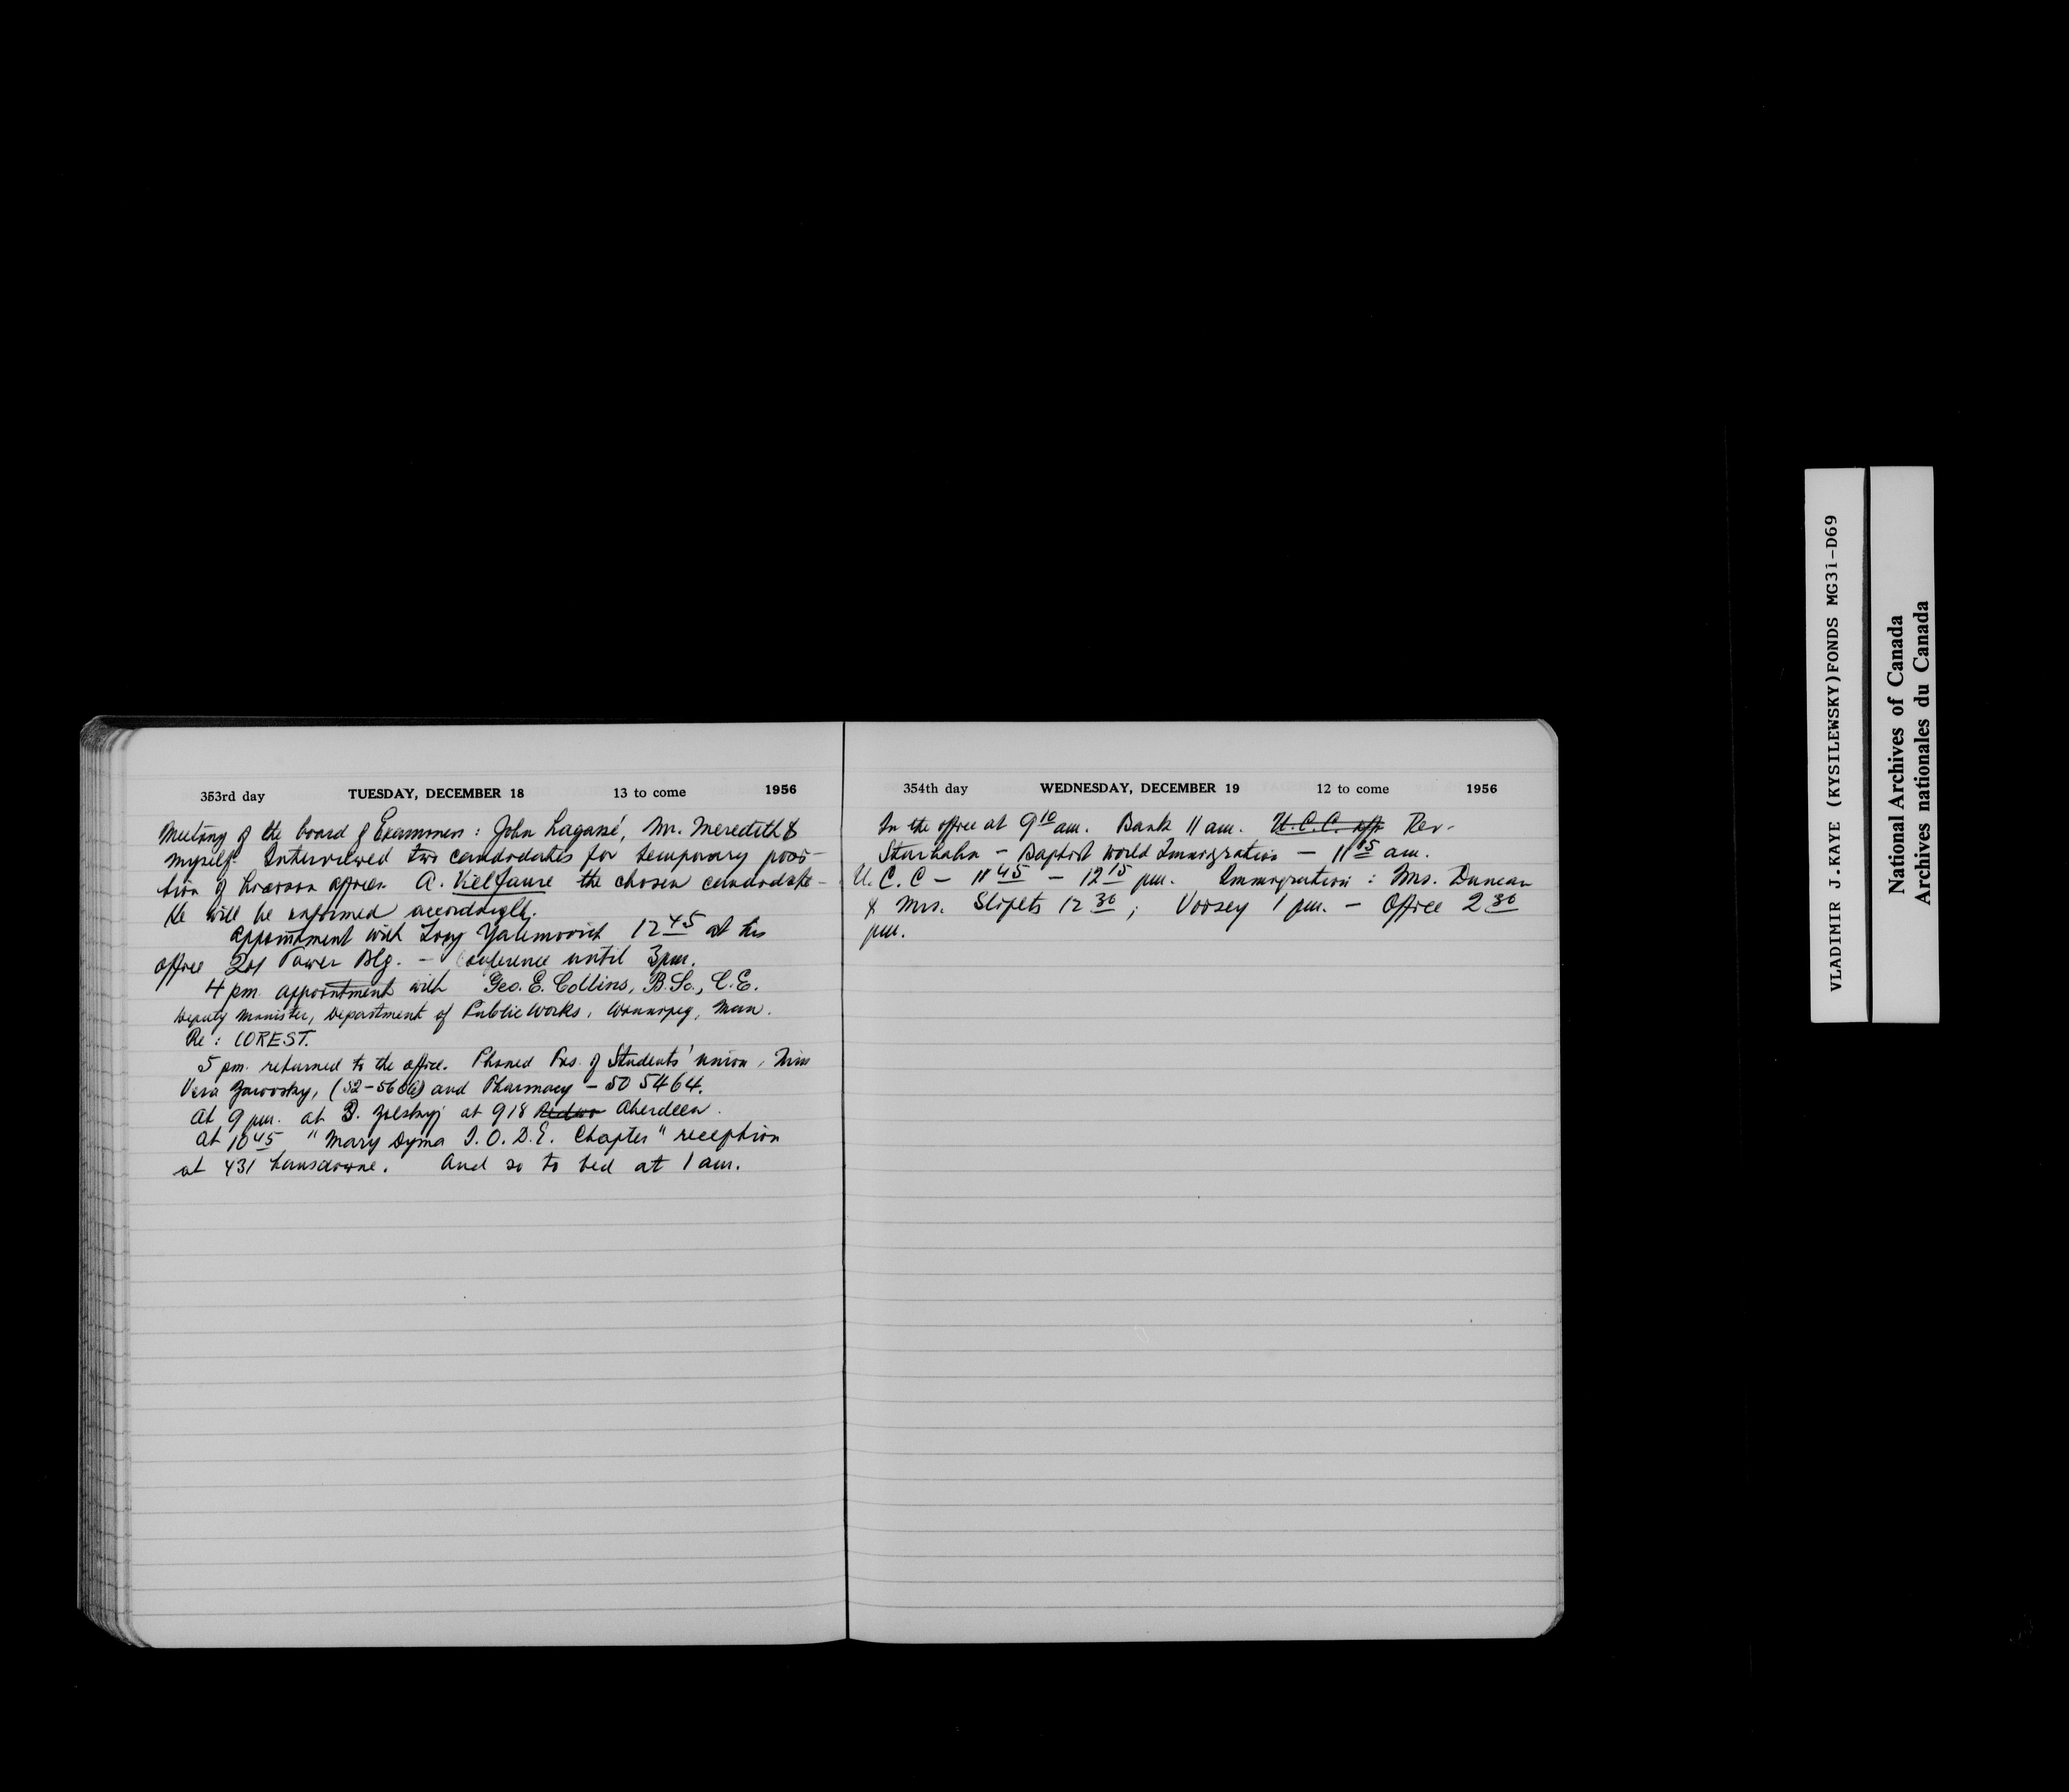 353rd day TUESDAY, DECEMBER 18 13 to come 1956
Meeting of the board of Examiners: John Lagassé, Mr. Meredith &
myself. Interviewed two candidates for temporary posi-
tion of Liaison officer. A. Vielfaure the chosen candidate -
He will be informed accordingly.
Appointment with Yaremovich 12 45 at his
office 201 Power Blg. - Conference until 3 pm.
4 pm. appointment with Geo. E. Collins, B.Sc., C.E.
Deputy Minister, Department of Public Works, Winnipeg, Man.
Re: COREST.
5 pm. returned to the office. Phoned Pres. of Students' Union, Miss
Vera and Pharmacy - 50 5464.
At 9 pm. at at 918 Aberdeen.
At 10 45 "Mary Dyma I.O.D.E. Chapter" reception
at 431 Lansdowne. And so to bed at 1 am.
354th day WEDNESDAY, DECEMBER 19 12 to come 1956
In the office at 9 10 am. Bank 11 am. U.C.C. Rev.
Sturhahn - Baptist World Immigration - 11 15 am.
U.C.C - 11 45 - 12 15 pm. Immigration: Mrs. Duncan
& Mrs. 12 30; Voisey 1 pm. - Office 2 30
pm.
VLADIMIR J.KAYE (KYSILEWSKY)FONDS MG31-D69
National Archives of Canada
Archives nationales du Canada